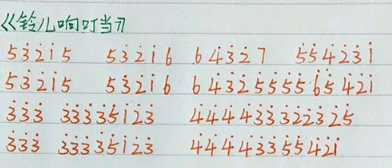 《铃儿响叮当》
53̇2̇1̇5 53̇2̇1̇6 64̇3̇2̇7 5̇5̇4̇2̇3̇1̇
53̇2̇1̇5 53̇2̇1̇6 64̇3̇2̇5̇5̇5̇5̇6̇5̇4̇2̇1̇
3̇3̇3̇ 3̇3̇3̇5̇1̇2̇3̇ 4̇4̇4̇4̇3̇3̇3̇2̇2̇3̇2̇5̇
3̇3̇3̇ 3̇3̇3̇5̇1̇2̇3̇ 4̇4̇4̇4̇3̇3̇5̇5̇4̇2̇1̇